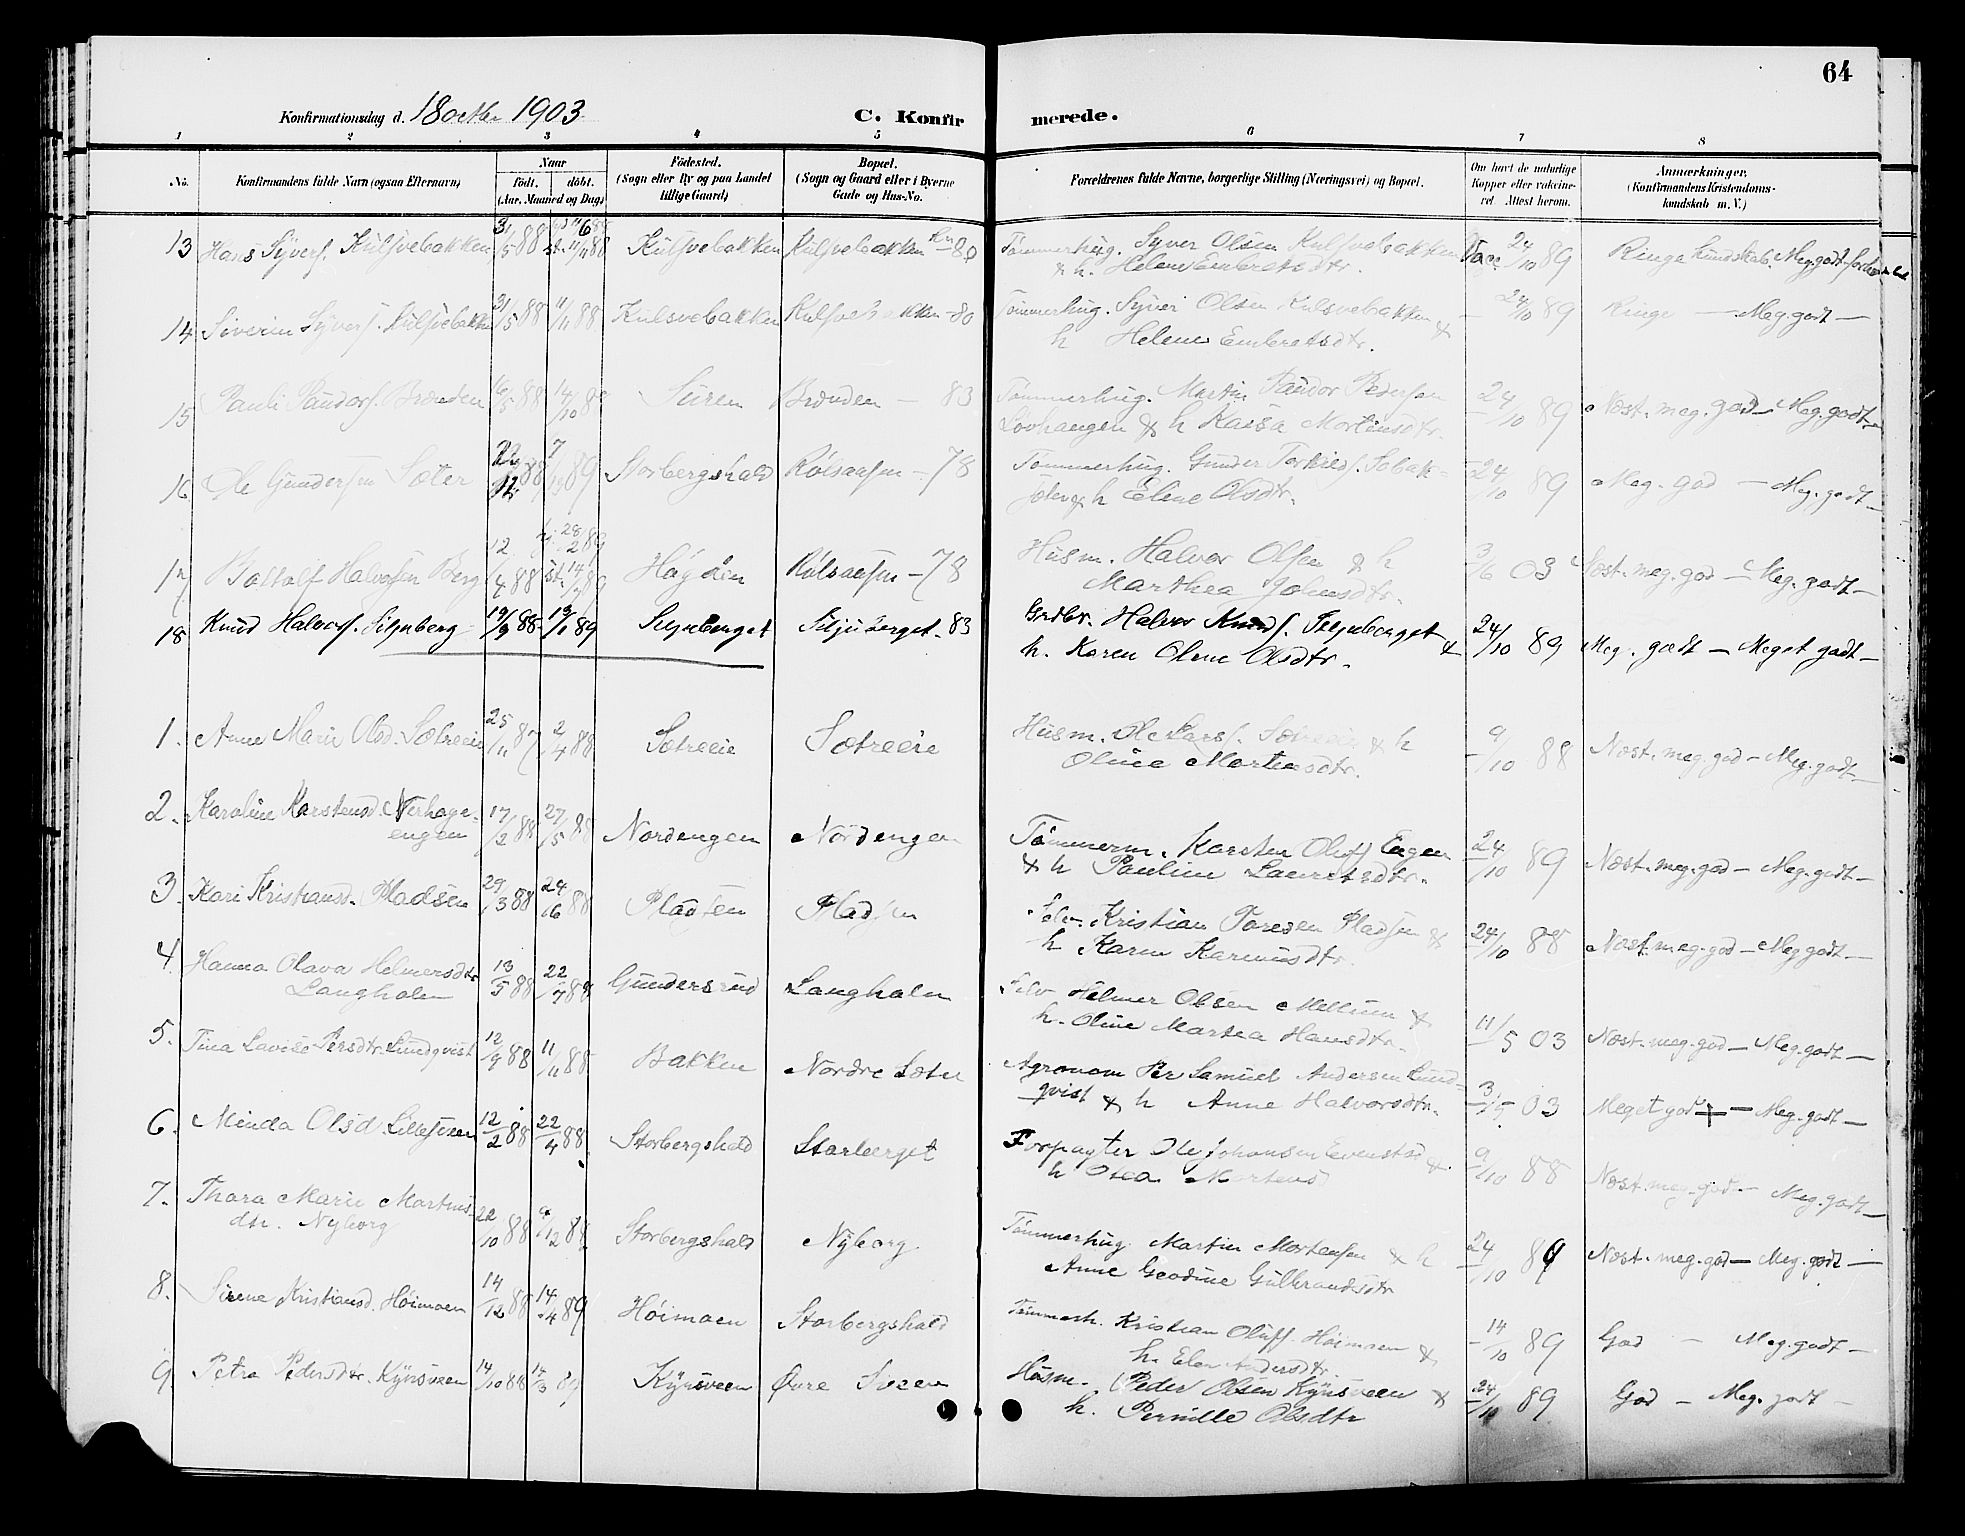 64
Konfirmationsdag d. 18 octbr 1903. C. Konfirmerede.
1 2 3 4 5 6 7 8
No. Konfirmandens fulde Navn (ogsaa Efternavn) Naar födt. döbt. (Aar, Maaned og Dag) Födested. (Sogn eller By og paa Landet tillige Gaard) Bopæl. (Sogn og Gaard eller i Byerne Gade og Hus-No. Forældrenes fulde Navne, borgerlige Stilling (Næringsvei) og Bopæl. Om havt de naturlige Kopper eller vakcineret. Attest herom. Anmærkninger. (Konfirmandens Kristendomskundskab m. V.)
13 Hans Syvers. Kulsvebakken 31/5 88 11/11 88 Kulsvebakken Kulsvebakken 80 Tömmerhug. Syver Olsen Kulsvebakken Vacc. 24/10 89 Ringe Kundskab. Meg. godt
& h. Helene Embretsdtr.
14 Severin Syvers. Kulsvebakken 31/5 88 11/11 88 Kulsvebakken Kulsvebakken - 80 Tömmerhug. Syver Olsen Kulsvebakken & - 24/10 89 Ringe — Meg. godt —
h Helene Embretsdtr.
15 Pauli Sandors. Brænden 16/5 88 14/10 88 Brænden — 83 Tömmerhug. Martin Sandor Pedersen 24/10 89 Næst. meg. god — Meg. godt —
Lövhaugen & h Kaisa Mortensdtr.
16 Ole Gundersen Sæter 88 89 Storbergshald Rölsaasen - 78 Tömmerhug. Gunder Torkilds. 24/10 89 Meg. god — Meg. godt —
& h Eline Olsdtr.
17 Halvorsen Berg 12/4 88 28/2 89 Rölsaasen - 78 Husm. Halvor Olsen & h 3/6 03 Næst. meg. god — Meg. godt —
Marthea Johnsdtr.
18 Knud Halvors. Siljuberg 19/9 88 13/1 89 Siljuberget Siljuberget - 83 Grdbr. Halvor Knuds. Siljuberget & 24/10 89 Meg. godt — Meget godt —
h. Karen Oline Olsdtr.
1. Anne Marie Olsd. Sætreeie 25/11 87 2/4 88 Sætreeie Sætreeie Husm. Ole Lars. Sætreeie & h 9/10 88 Næst. meg. god — Meg. godt —
Oline Mortensdtr.
2. Karoline Karstensd. Nerhageengen 17/2 88 27/5 88 Nordengen Nordengen Tömmerm. Karsten Olufs. Engen 24/10 89 Næst. meg. god — Meg. godt —
& h Pauline Lauritsdtr.
3. Kari Kristiansd. Pladsen 29/3 88 24/6 88 Pladsen Pladsen Selv. Kristian Paresen Pladsen & 24/10 88 Næst. meg. god — Meg. godt —
h Karen Karinusdtr.
4. Hanna Olava Helmersdtr Langholen 13/5 88 22/7 88 Gundersrud Langholen Selv Helmer Olsen Mellum & 11/5 03 Næst. meg. god — Meg. godt —
h. Oline Martea Hansdtr.
5. Tina Lovise Persdtr. Lundqvist 12/9 88 11/11 88 Bakken Nordre Sæter Agronom Per Samuel Andersen Lundqvist & h Anne Halvorsdtr. 03 Meget god + — Meg. godt —
6. Minda Olsd. Lillesveen 12/2 88 22/4 88 Storbergshald Storberget Forpagter Ole Johansen Evenstad & 9/10 88 Næst. meg. god — Meg. godt —
h Olea Mortensd
7. Thora Marie Martinsdtr. Nyborg 22/10 88 9/12 88 Storbergshald Nyborg Tömmerhug. Martin Mortensen & h 24/10 89 Næst. meg. god — Meg. godt —
Anne Geodine Gulbrandsdtr
8. Sirene Kristiansd. Höimoen 14/12 88 14/4 89 Höimoen Storbergshald Tömmerh. Kristian Olufs. Höimoen & 14/10 89 God — Meg. godt —
h. Elen Andersdtr.
9. Petra Pedersdtr. Kynsveen 14/10 88 89 Kynsveen Övre Sveen Husm. Peder Olsen Kynsveen & 24/10 89 God — Meg. godt —
h. Pernille Olsdtr